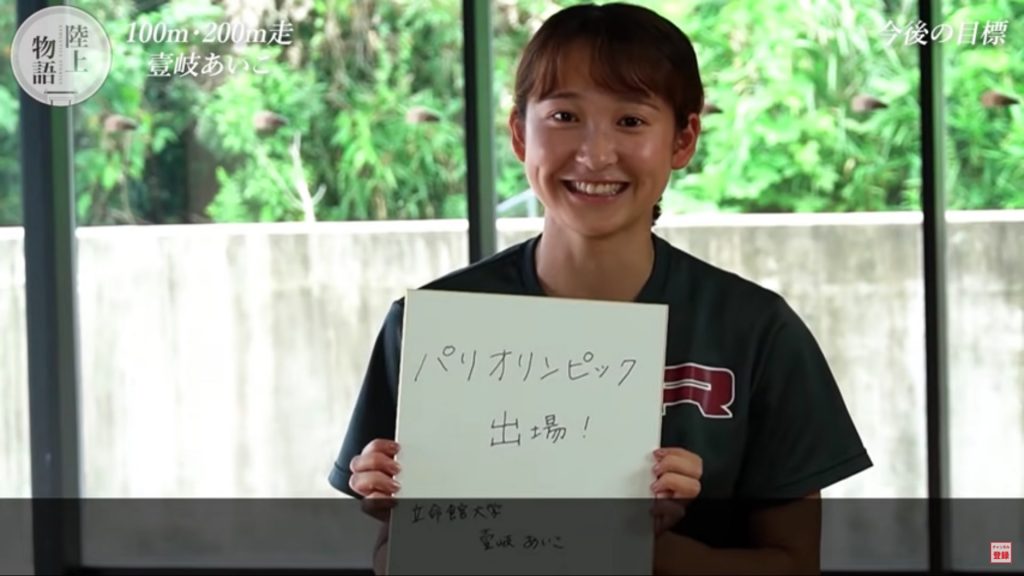 陸上
物語
100m・200m走
壹岐あいこ
今後の目標
パリオリンピック
出場！
立命館大学
壹岐 あいこ
チャンネル
登録